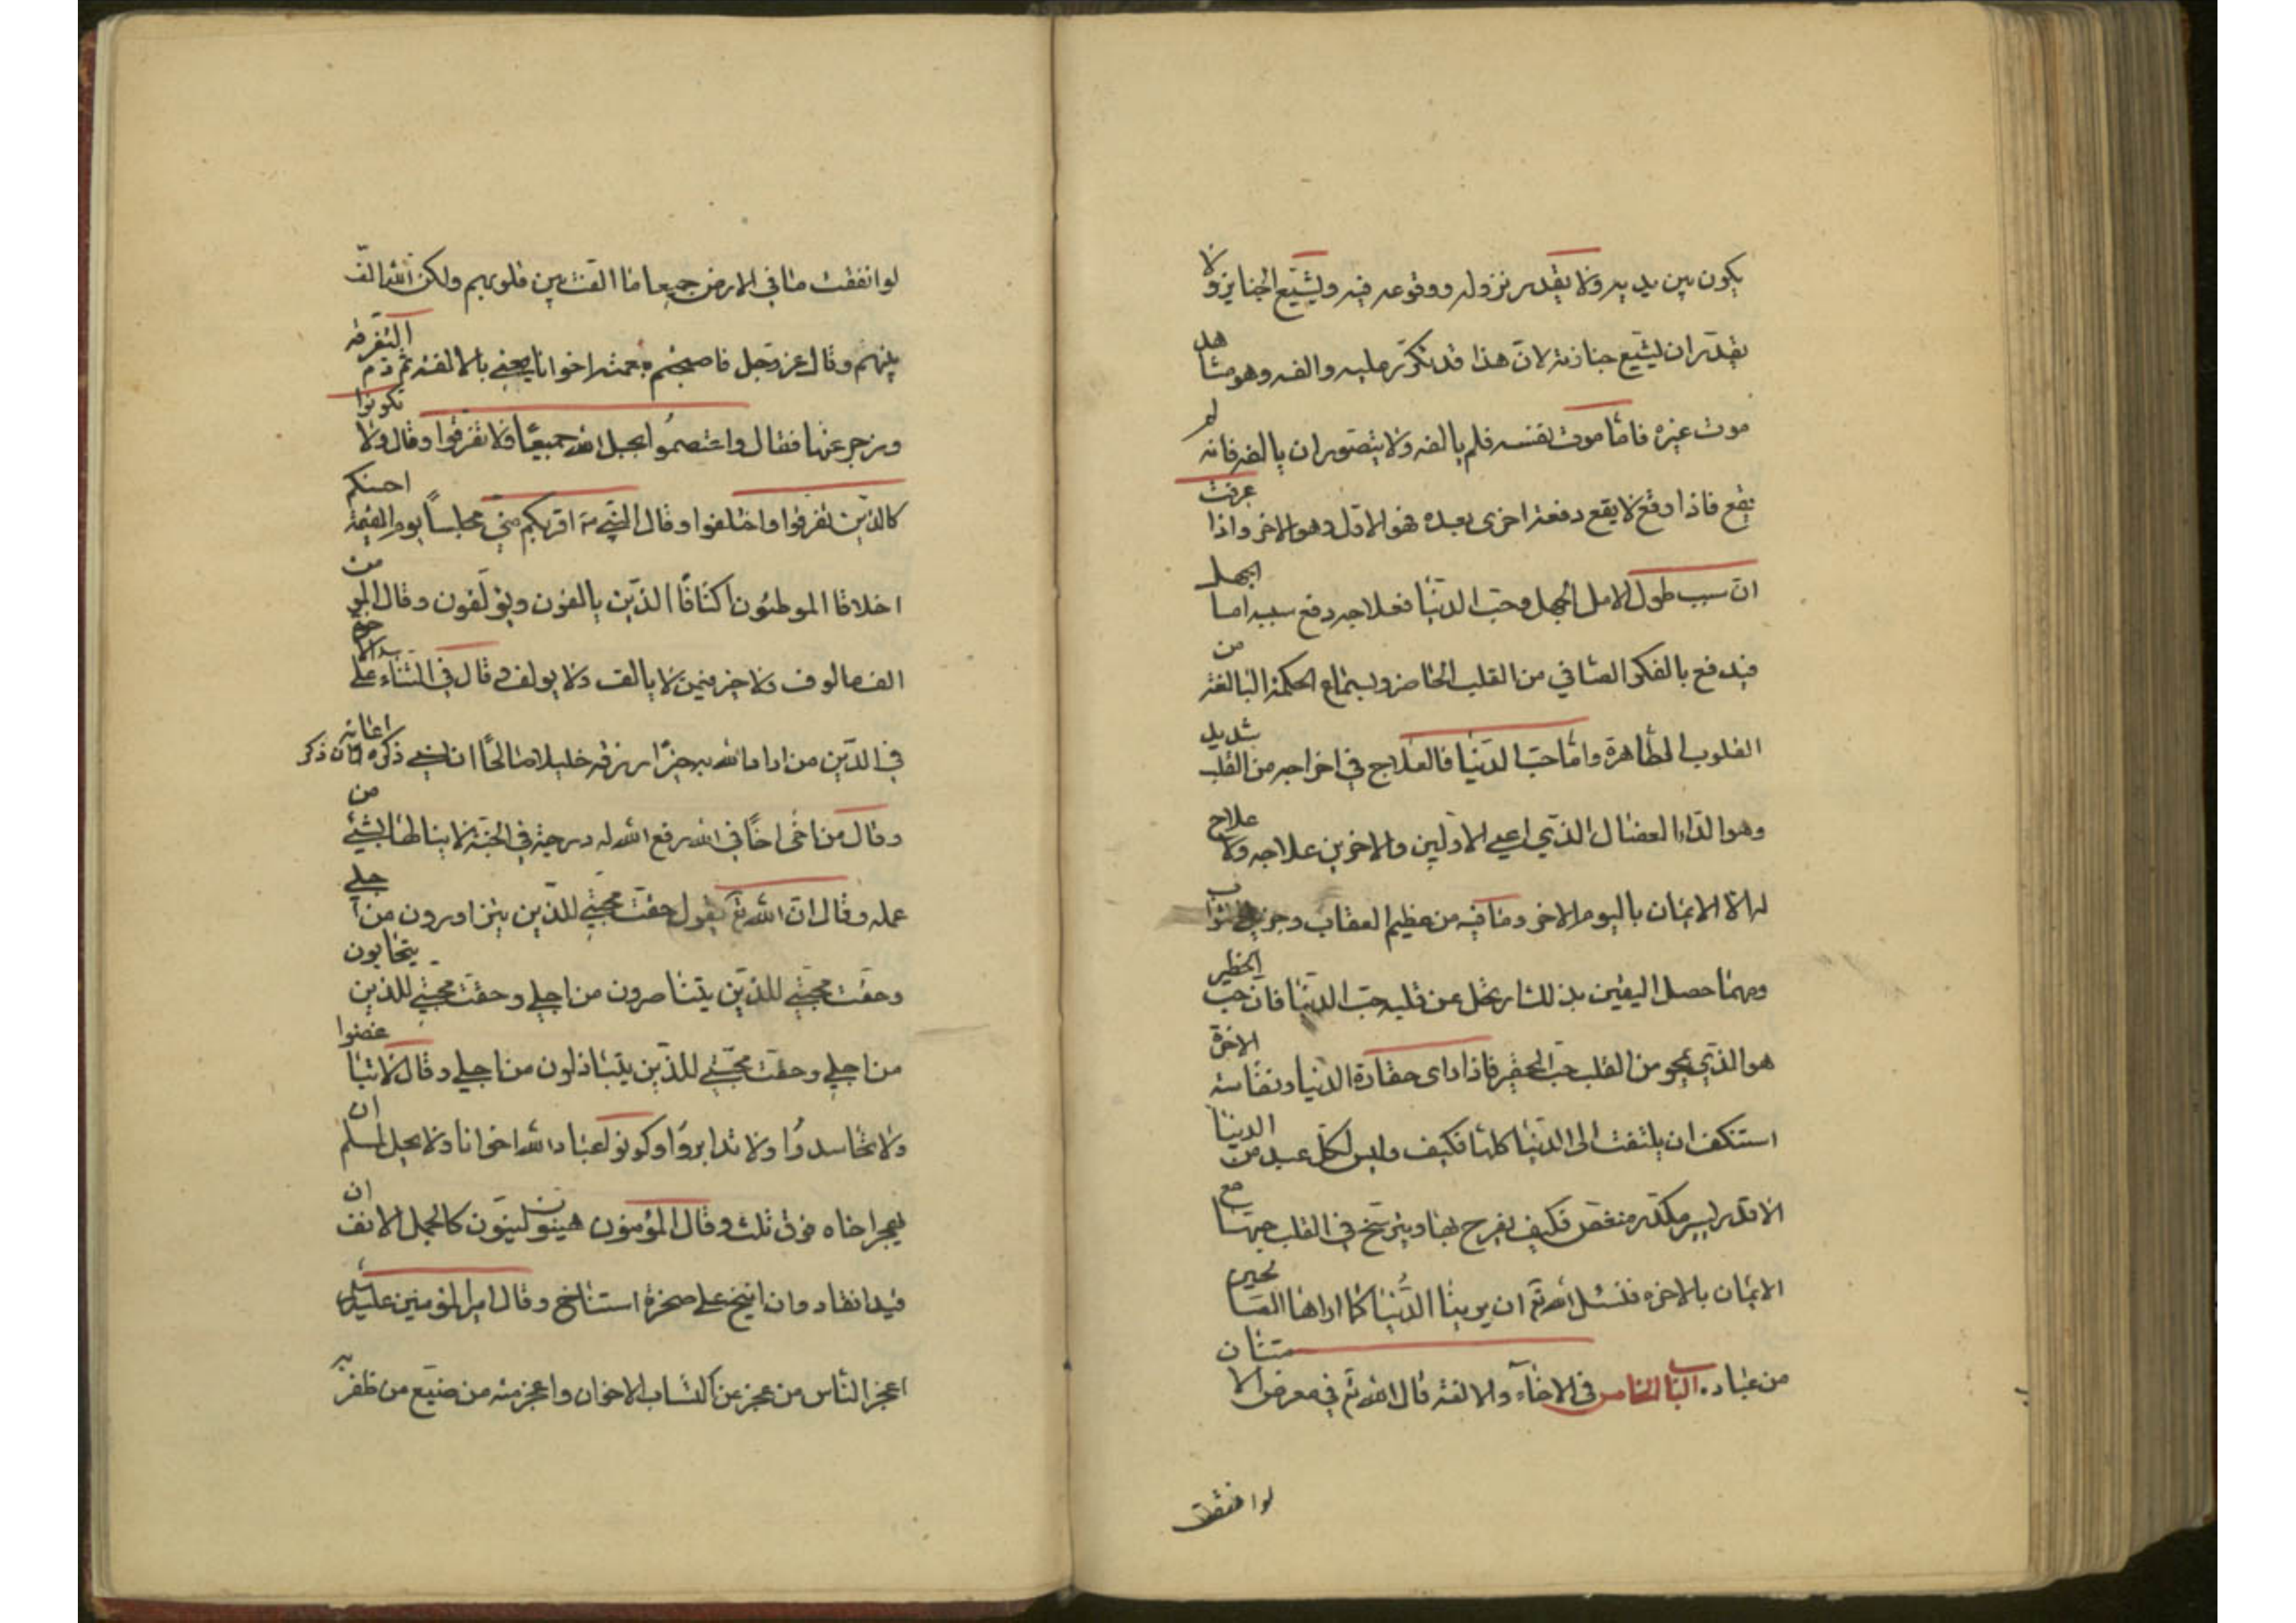 يكون بين يديه ولا يقدر نزوله ووقوعه فيه ويشيع الجنايز ولا
يقدر ان يشيع جنازته لانّ هذا قد تكرّر عليه والفه وهو مشاهد
موت غيره فامّا موت نفسه فلم يالفه ولا يتصوّر ان يالفه فانه لم
يقع فاذا وقع لا يقع دفعة اخرى بعده فهو الاوّل وهو الاخر واذا عرفت
انّ سبب طول الامل الجهل وحبّ الدنيا فعلاجه دفع سببه اما الجهل
فيدفع بالفكر الصافي من القلب الحاضر وبسماع الحكمة البالغة من
القلوب الطاهرة وامّا حبّ الدنيا فالعلاج في اخراجه من القلب شديد
وهو الداء العضال الذي اعيى الاوّلين والاخرين علاجه ولا علاج
له الا الايمان باليوم الاخر وما فيه من عظيم العقاب وجزيل الثواب
ومهما حصل اليقين بذلك ارتحل عن قلبه حبّ الدنيا فان حبّ الخطير
هو الذي يمحو من القلب حبّ الحقير فاذا راى حقارة الدنيا ونفاسة الاخرة
استنكف ان يلتفت الى الدنيا كلها فكيف وليس لكلّ عبد من الدنيا
الا قدر يسير مكدّر منغص فكيف يفرح بها ويترسّخ في القلب حبها مع
الايمان بالاخرة فنسئل الله تع ان يرينا الدنيا كما اراها الصالحين
من عباده الباب الخامس في الاخاء والالفة قال الله تع في معرض الامتنان
لو انفقت
لو انفقت ما في الارض جميعا ما الفت بين قلوبهم ولكن الله الّف
بينهم وقال عز وجل فاصبحتم بنعمته اخوانا يعني بالالفة ثم ذم التفرقة
وزجر عنها فقال واعتصموا بحبل الله جميعًا ولا تفرّقوا وقال ولا تكونوا
كالذين تفرقوا واختلفوا وقال النبي ص اقربكم منّي مجلسًا يوم القيمة احسنكم
اخلاقا الموطئون اكنافًا الذين يالفون ويؤلفون وقال المؤمن
الف مالوف ولا خير فيمن لا يالف ولا يولف وقال في الثناء على الاخوة
في الدّين من اراد الله به خيرًا رزقه خليلا صالحًا ان نسي ذكّره وان ذكر اعانه
وقال من اخى اخًا في الله رفع الله له درجة في الجنّة لا ينالها بشيء من
عمله وقال انّ الله تع يقول حقّت محبّتي للذين يتزاورون من اجلي
وحقت محبّتي للذين يتناصرون من اجلي وحقت محبّتي للذين يتحابون
من اجلي وحقت محبّتي للذين يتباذلون من اجلي وقال لا تباغضوا
ولا تحاسدوا ولا تدابروا وكونوا عباد الله اخوانا ولا يحل لمسلم ان
يهجر اخاه فوق ثلث وقال المؤمنون هينون لينون كالجمل الانف ان
قيد انقاد وان انيخ على صخرة استناخ وقال امير المؤمنين عليه السلم
اعجز الناس من عجز عن اكتساب الاخوان واعجز منه من ضيّع من ظفر به